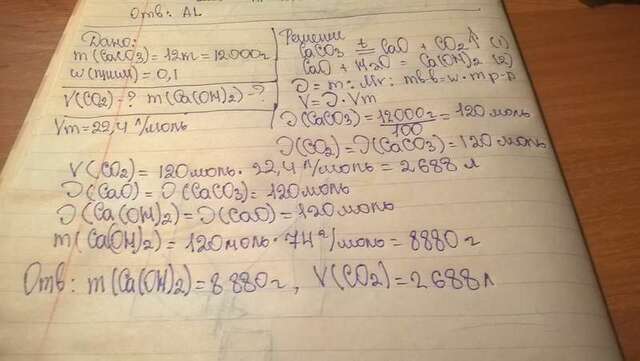 Отв: AL
Дано:
m(CaCO3)=12т=12000г
w(прим)=0,1
V(CO2)-? m(Ca(OH)2)-?
Vm=22,4 л/моль
Решение
CaCO3 t= CaO + CO2↑ (1)
CaO + H2O = Ca(OH)2 (2)
Э = m : Mr; mв-в=w·mр-р
V=Э·Vm
Э(CaCO3)=12000г/100=120 моль
Э(CO2)=Э(CaCO3)=120 моль
V(CO2)=120моль·22,4 л/моль=2688 л
Э(CaO)=Э(CaCO3)=120моль
Э(Ca(OH)2)=Э(CaO)=120моль
m(Ca(OH)2)=120моль·74 г/моль=8880 г
Отв: m(Ca(OH)2)=8880г, V(CO2)=2688л